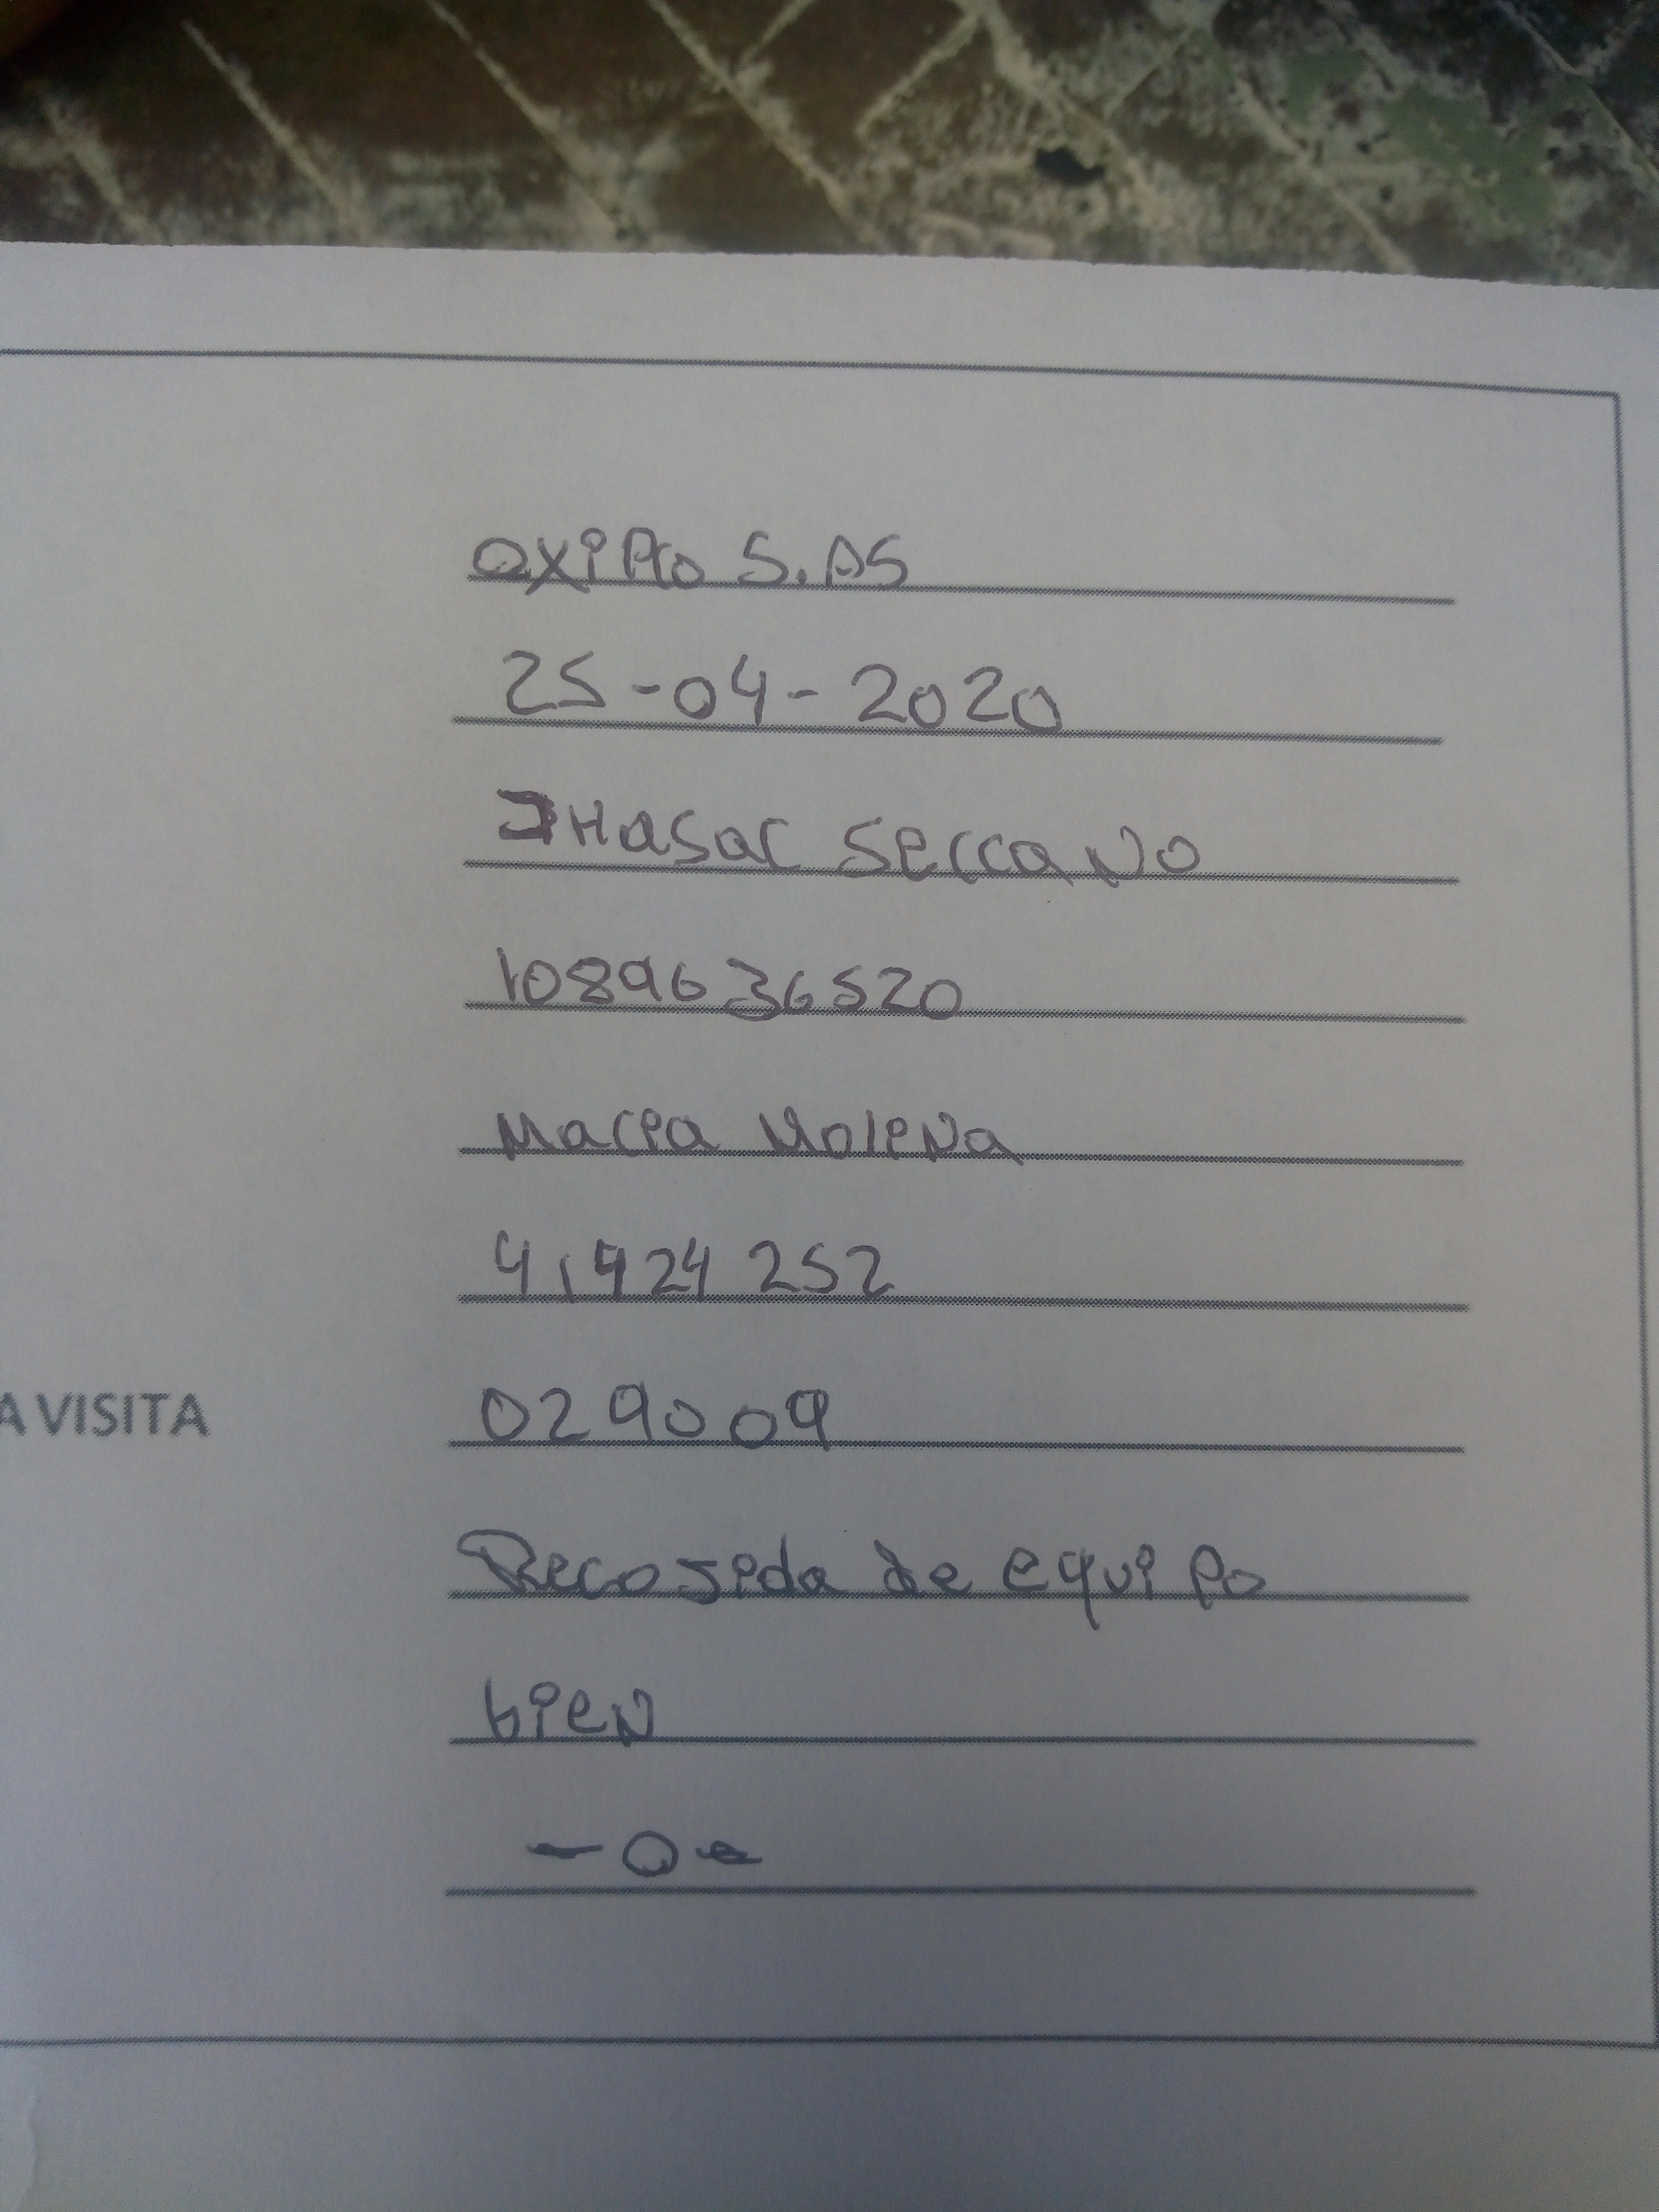 OXiPro S.AS
25-04-2020
JHasar SerraNo
1089636520
Maria MoliNa
41924252
A VISITA 029009
Recojida de equipo
bien
-0-